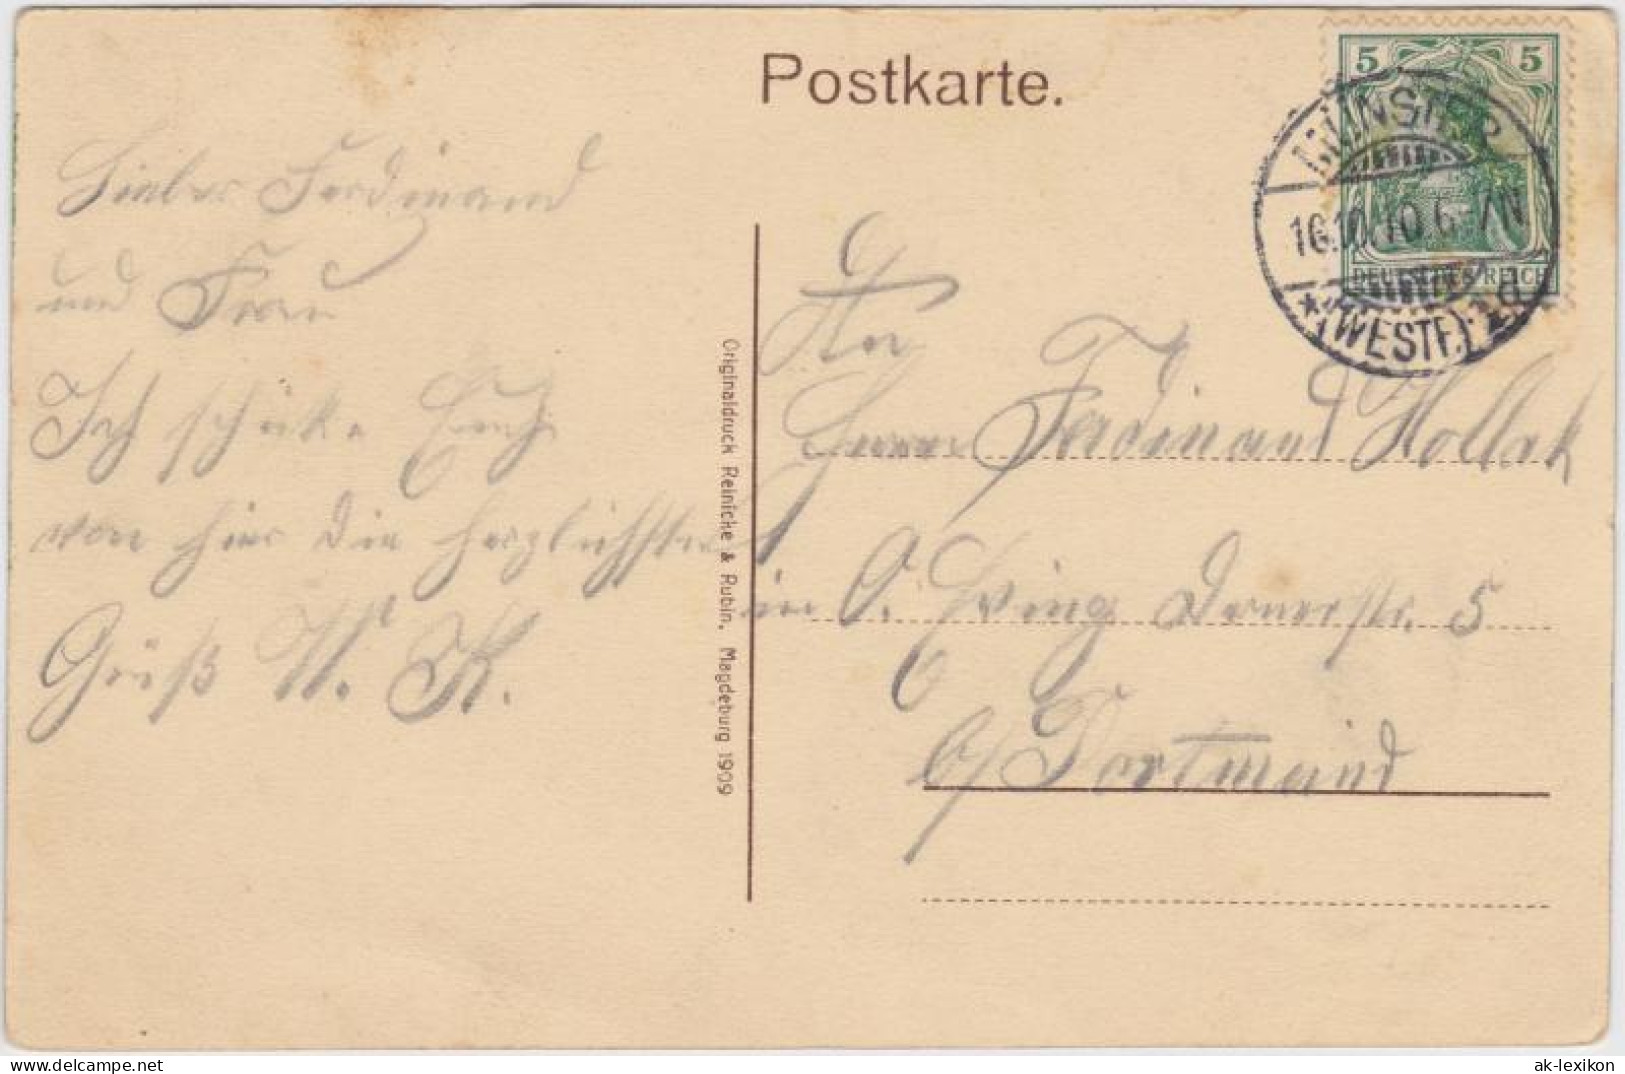 Postkarte.
5 5
DEUTSCHES REICH
MÜNSTER
16.10.10.6-7N
*(WESTF.)*1d
Lieber Ferdinand
und Frau
Ich schicke Euch
von hier die herzlichsten
Grüß W. K.
Originaldruck Reinicke & Rubin, Magdeburg 1909
An
Herrn Ferdinand
in O. Eving 5
b/ Dortmund
ak-lexikon